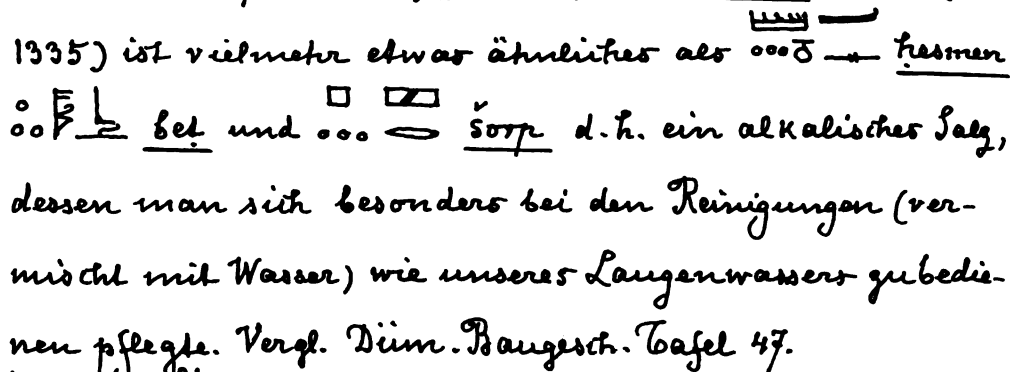 1335) ist vielmehr etwas ähnliches als ḥesmen
beṭ und šorp d.h. ein alkalisches Salz,
dessen man sich besonders bei den Reinigungen (ver-
mischt mit Wasser) wie unseres Laugenwassers zu bedie-
nen pflegte. Vergl. Düm. Baugesch. Tafel 47.